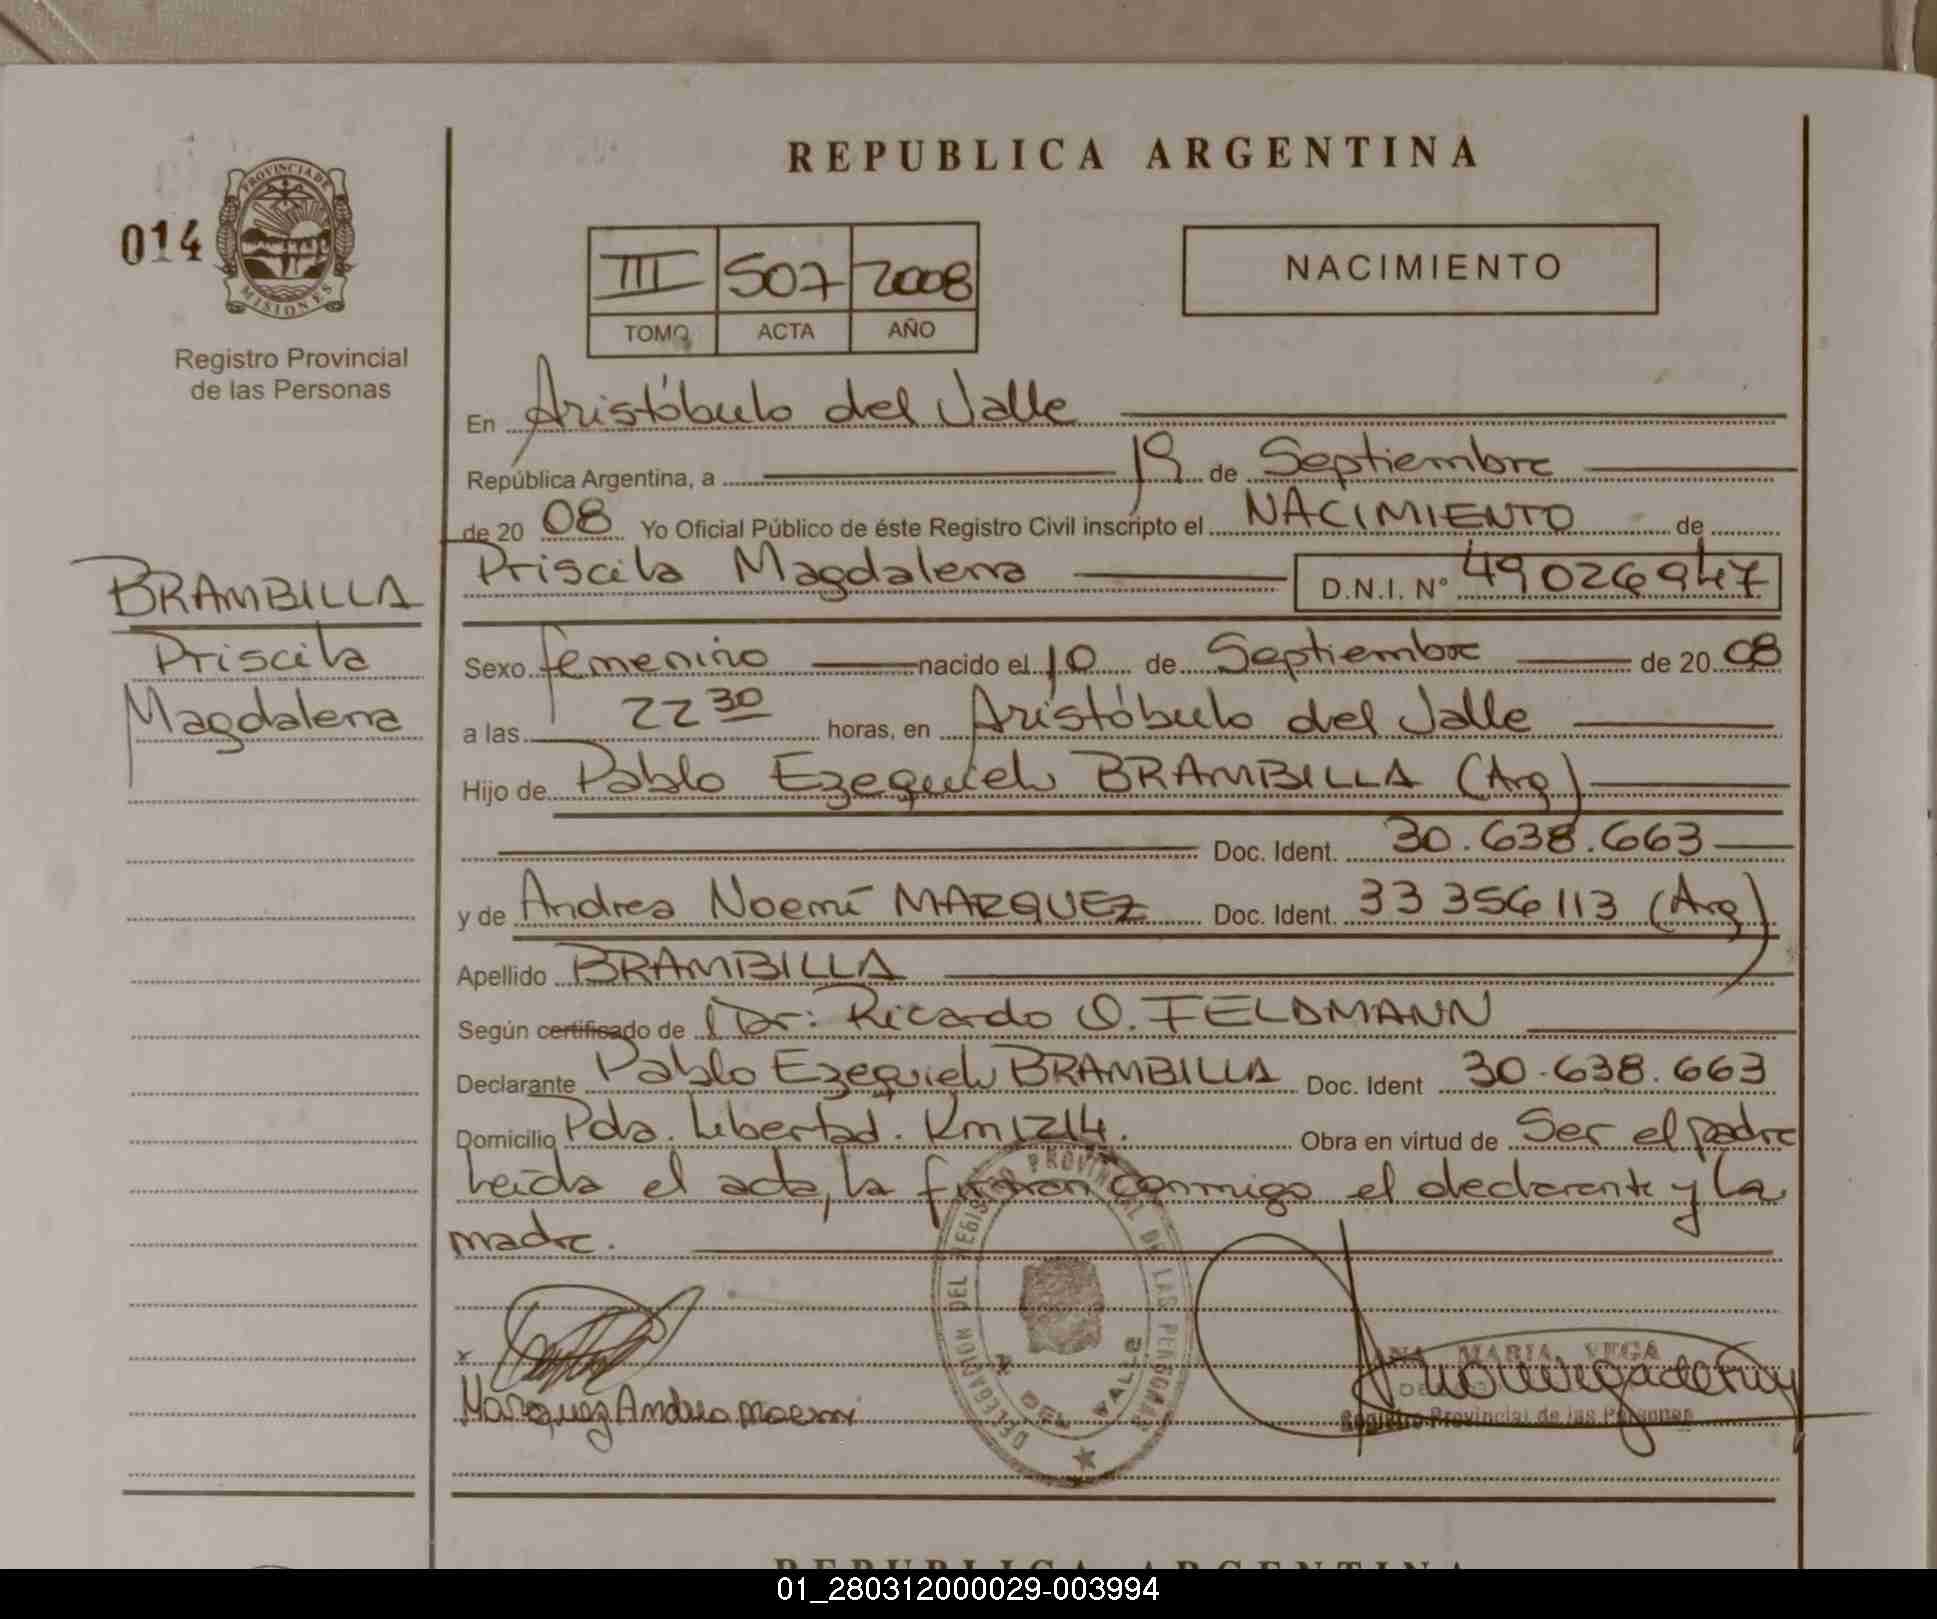 REPUBLICA ARGENTINA
014
PROVINCIA DE
MISIONES
Registro Provincial
de las Personas
III 507 2008
TOMO ACTA AÑO
NACIMIENTO
En Aristóbulo del Valle
República Argentina, a 19 de Septiembre
de 20 08 Yo Oficial Público de éste Registro Civil inscripto el NACIMIENTO de
Priscila Magdalena D.N.I. N° 49026947
BRAMBILLA
Priscila
Magdalena
Sexo femenino nacido el 10 de Septiembre de 20 08
a las 22 30 horas, en Aristóbulo del Valle
Hijo de Pablo Ezequiel BRAMBILLA (Arg)
Doc. Ident. 30.638.663
y de Andrea Noemí MARQUEZ Doc. Ident. 33 356113 (Arg)
Apellido BRAMBILLA
Según certificado de Dr: Ricardo O. FELDMANN
Declarante Pablo Ezequiel BRAMBILLA Doc. Ident 30.638.663
Domicilio Pda. Libertad. Km 1214. Obra en virtud de Ser el padre
Leida el acta, la firman conmigo el declarante y la
madre.
DELEGACION DEL REGISTRO PROVINCIAL DE LAS PERSONAS
A DEL VALLE
x
Marquez Andrea Noemi
ANA MARIA VEGA
Registro Provincial de las Personas
REPUBLICA ARGENTINA
01_280312000029-003994